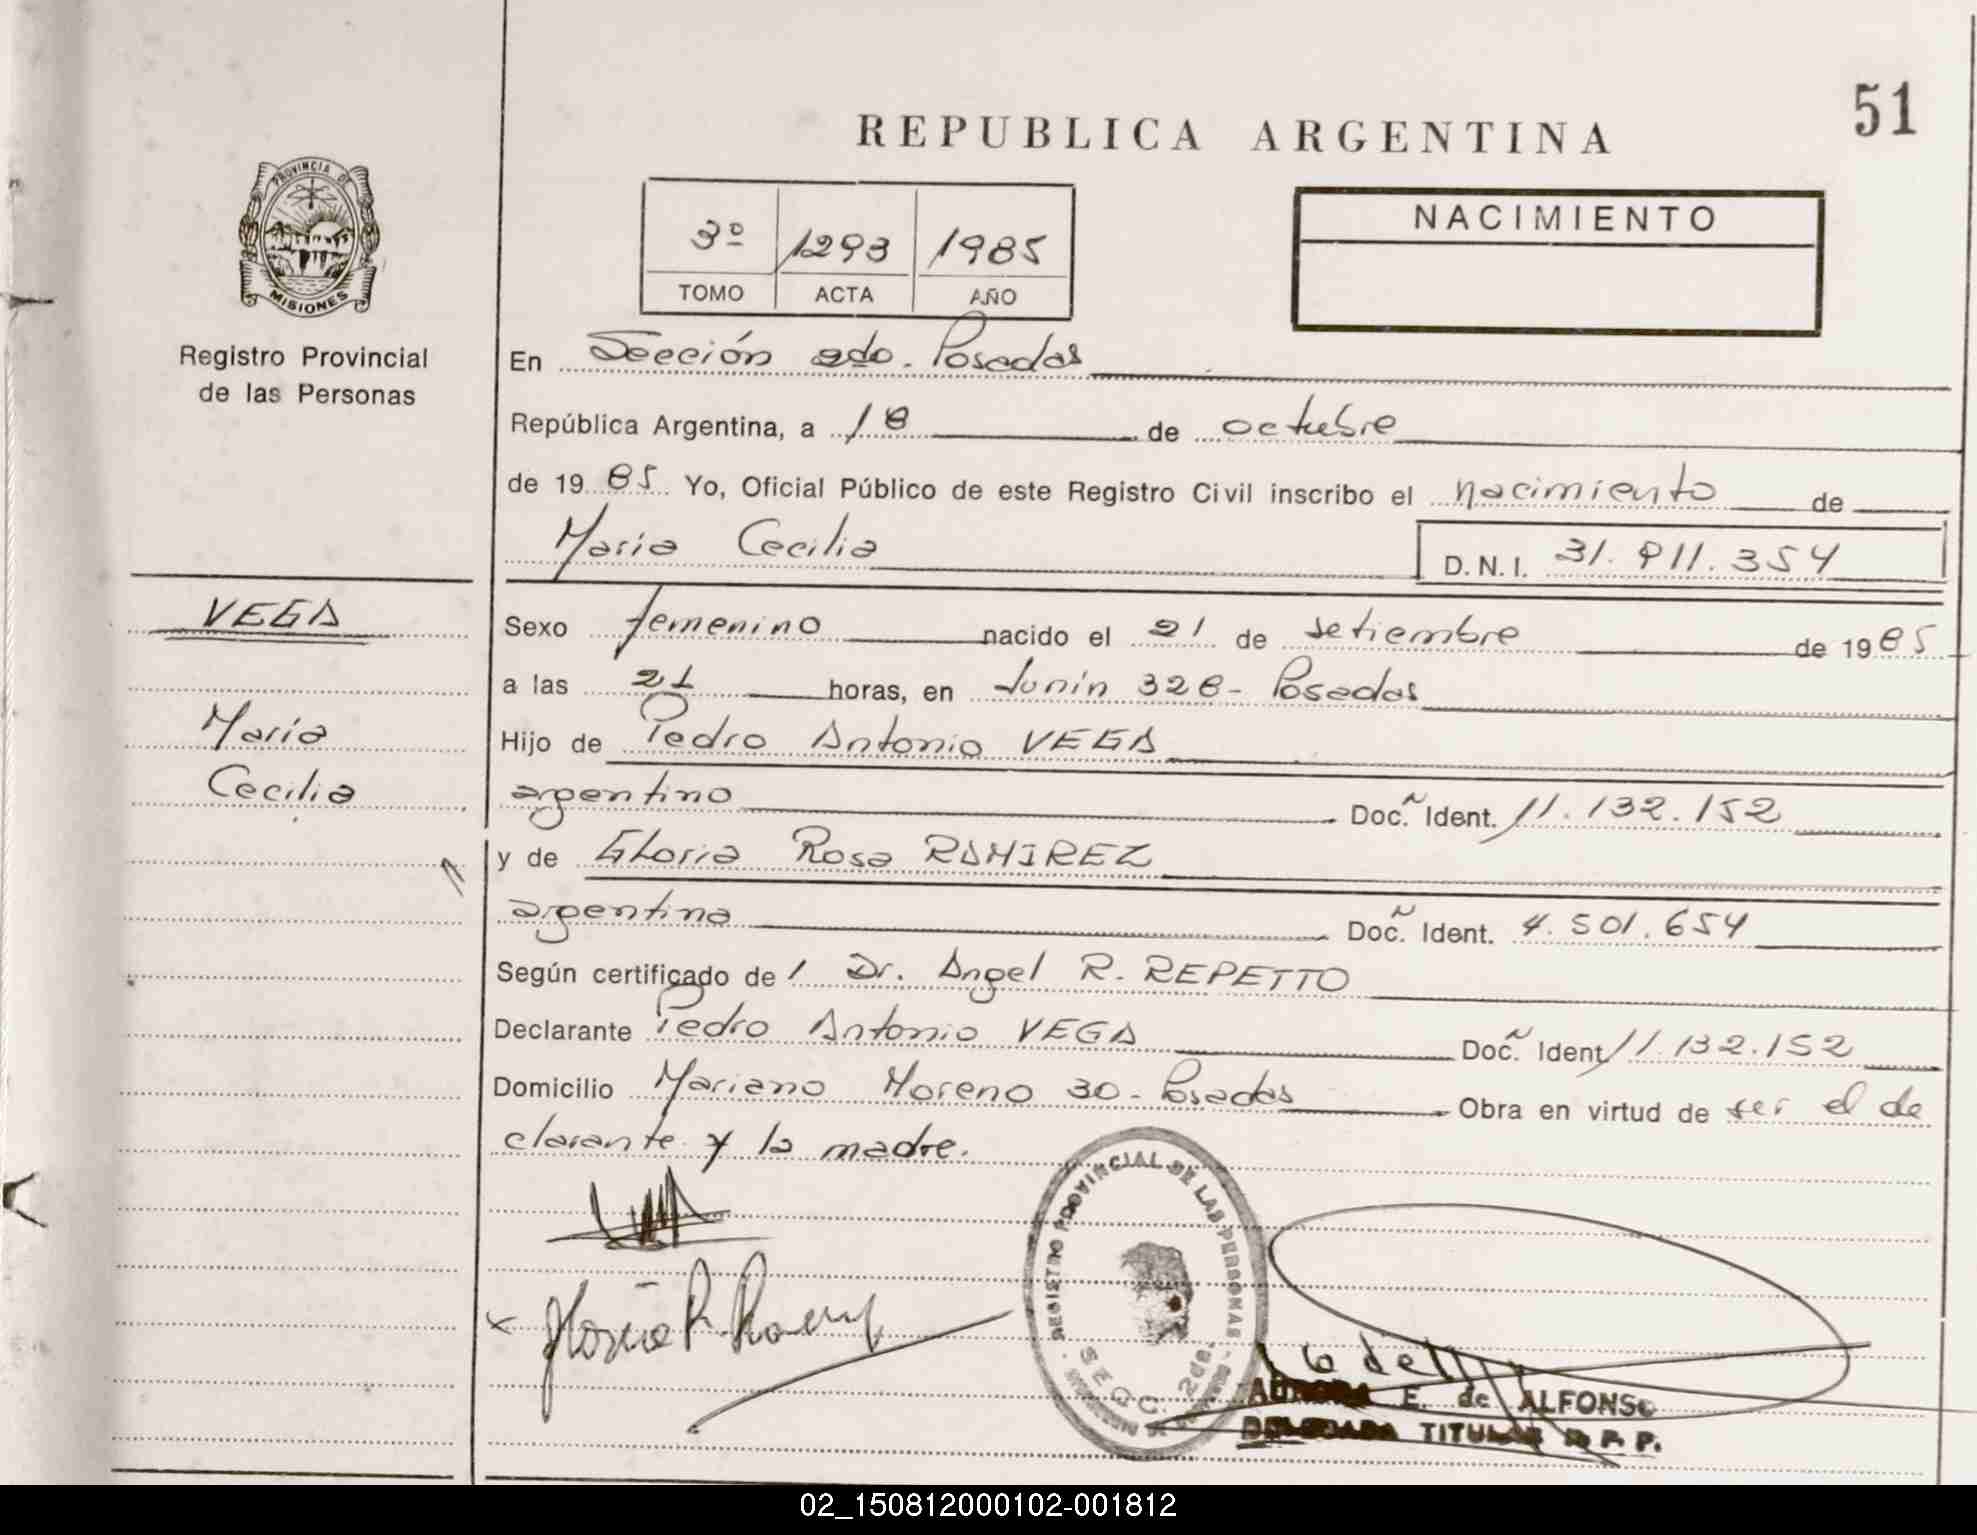 51
REPUBLICA ARGENTINA
PROVINCIA DE
MISIONES
Registro Provincial
de las Personas
3º 1293 1985
TOMO ACTA AÑO
NACIMIENTO
En Sección 2do. Posadas
República Argentina, a 18 de octubre
de 1985 Yo, Oficial Público de este Registro Civil inscribo el nacimiento de
María Cecilia D.N.I. 31.911.354
VEGA
María
Cecilia
Sexo femenino nacido el 21 de setiembre de 1985
a las 21 horas, en Junín 328 - Posadas
Hijo de Pedro Antonio VEGA
argentino Doc. Ident. 11.132.152
y de Gloria Rosa RAMIREZ
argentina Doc. Ident. 4.501.654
Según certificado de l Dr. Angel R. REPETTO
Declarante Pedro Antonio VEGA Doc. Ident 11.132.152
Domicilio Mariano Moreno 30 - Posadas Obra en virtud de ser el de
clarante y la madre.
REGISTRO PROVINCIAL DE LAS PERSONAS
SECC. 2da.
AURORA E. de ALFONSO
DELEGADA TITULAR R. P. P.
02_150812000102-001812